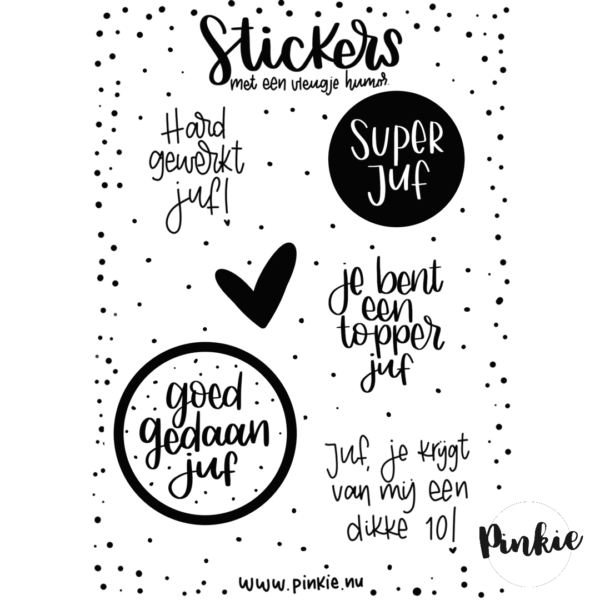 Stickers
met een vleugje humor
Hard
gewerkt
juf!
SUPER
JUF
je bent
een
topper
juf
goed
gedaan
juf
Juf, je krijgt
van mij een
dikke 10!
Pinkie
www.pinkie.nu